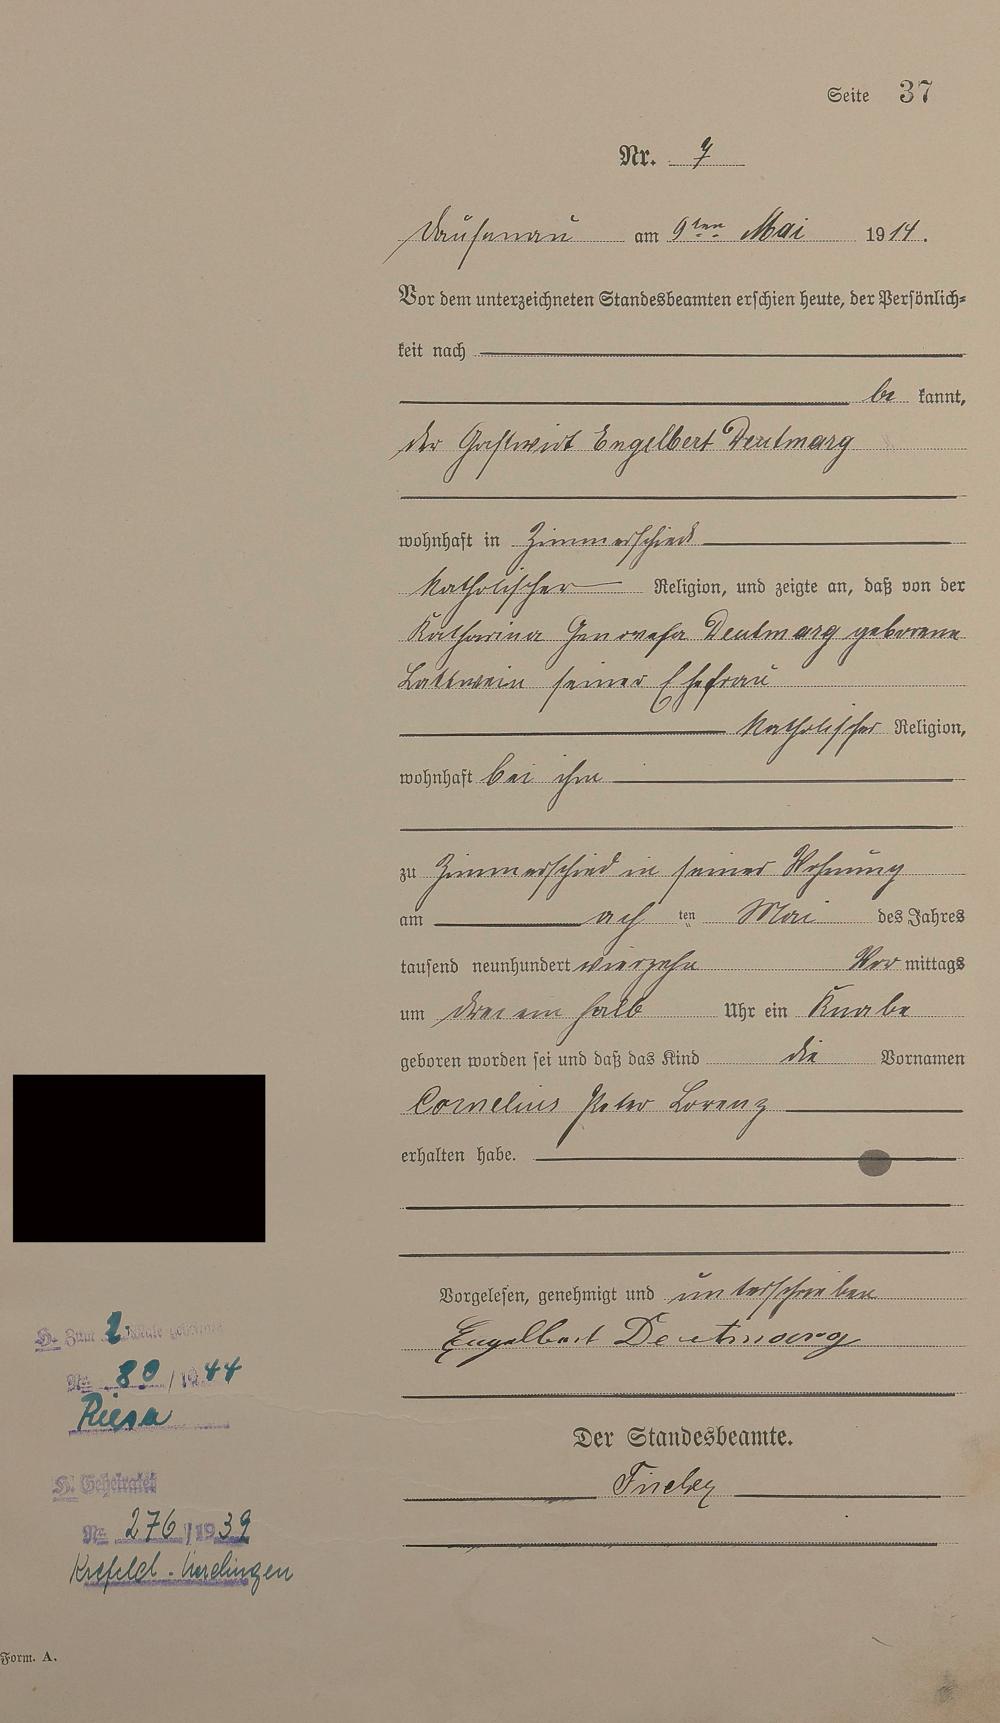 Seite 37
Nr. 7
Dausenau am 9ten Mai 1914.
Vor dem unterzeichneten Standesbeamten erschien heute, der Persönlich=
keit nach
be kannt,
der Gastwirt Engelbert Deutmarg
wohnhaft in Zimmerschied
katholischer Religion, und zeigte an, daß von der
Katharina Genovefa Deutmarg geborene
Lattwein seiner Ehefrau
katholischer Religion,
wohnhaft bei ihm
zu Zimmerschied in seiner Wohnung
am ach ten Mai des Jahres
tausend neunhundert vierzehn Vor mittags
um drei ein halb Uhr ein Knabe
geboren worden sei und daß das Kind die Vornamen
Cornelius Peter Lorenz
erhalten habe.
Vorgelesen, genehmigt und unterschrieben
Engelbert Deutmarg
Der Standesbeamte.
H. Zum 2. Male geheiratet
Nr. 80/1944
Riesa
H. Geheiratet
Nr. 276/1939
Krefeld-Uerdingen
Form. A.